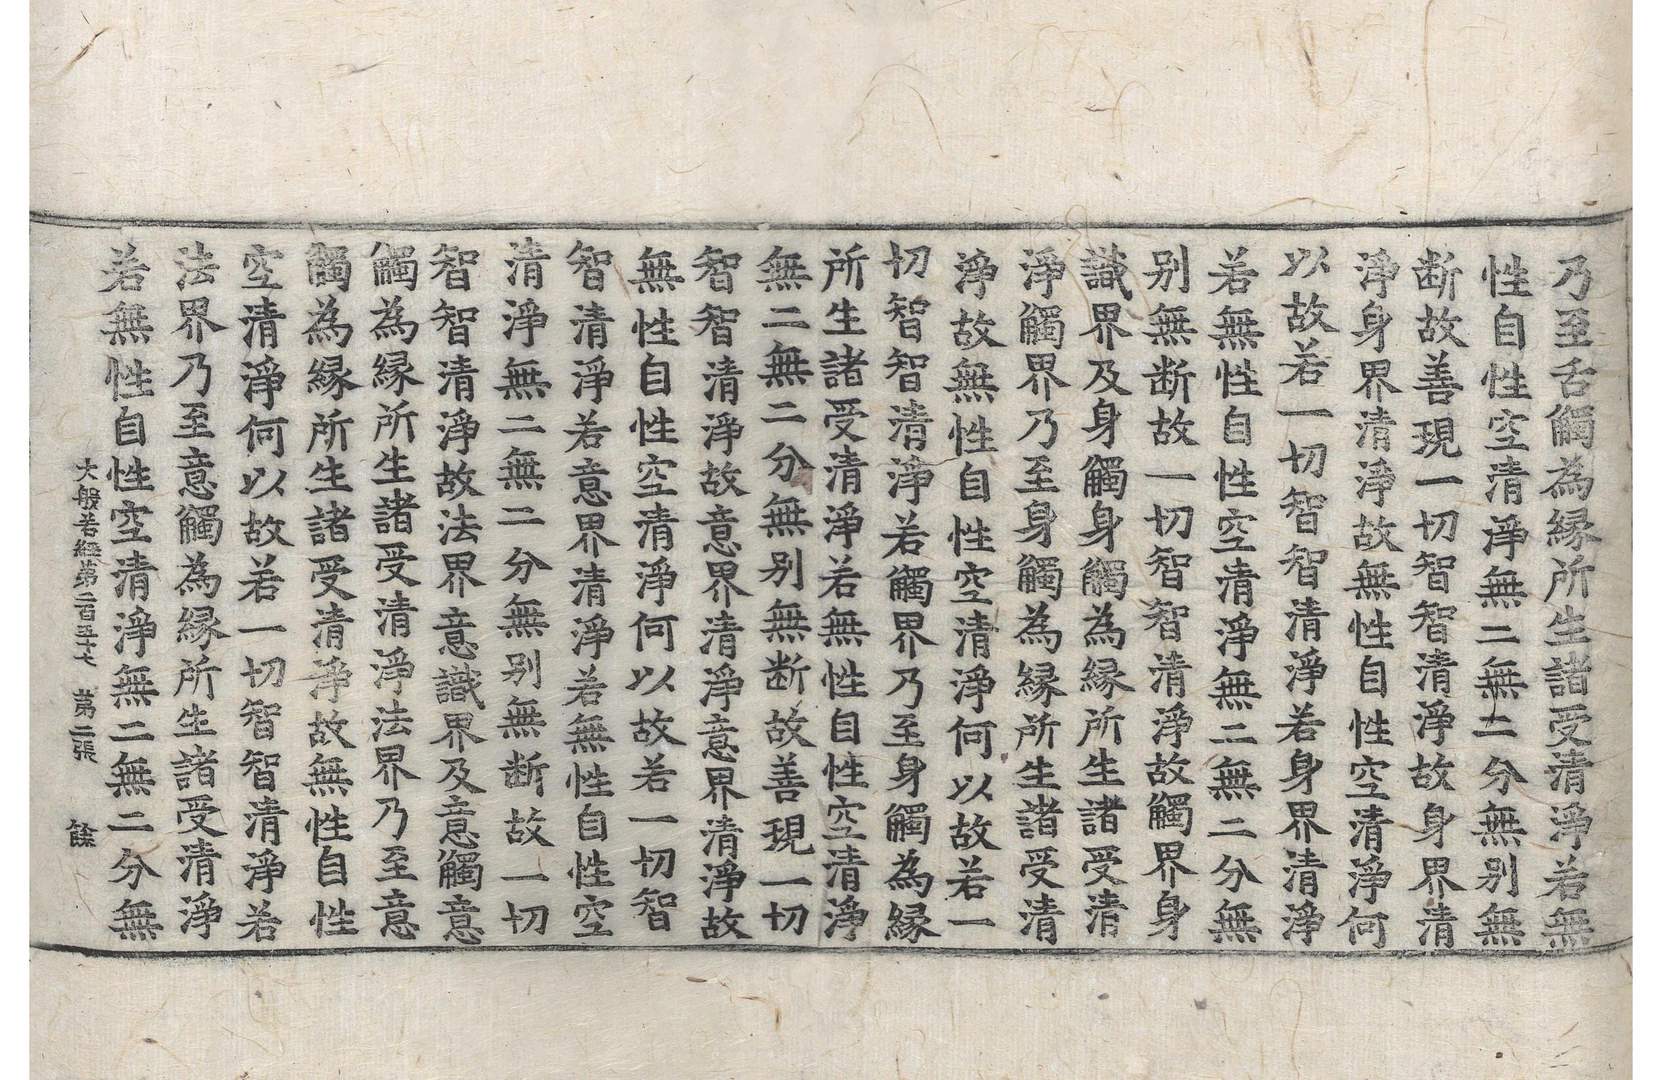 乃至舌觸為縁所生諸受清淨若無
性自性空清淨無二無二分無别無
断故善現一切智智清淨故身界清
淨身界清淨故無性自性空清淨何
以故若一切智智清淨若身界清淨
若無性自性空清淨無二無二分無
别無断故一切智智清淨故觸界身
識界及身觸身觸為縁所生諸受清
淨觸界乃至身觸為縁所生諸受清
淨故無性自性空清淨何以故若一
切智智清淨若觸界乃至身觸為縁
所生諸受清淨若無性自性空清淨
無二無二分無别無断故善現一切
智智清淨故意界清淨意界清淨故
無性自性空清淨何以故若一切智
智清淨若意界清淨若無性自性空
清淨無二無二分無别無断故一切
智智清淨故法界意識界及意觸意
觸為縁所生諸受清淨法界乃至意
觸為縁所生諸受清淨故無性自性
空清淨何以故若一切智智清淨若
法界乃至意觸為縁所生諸受清淨
若無性自性空清淨無二無二分無
大般若經第二百五十七 第二張 餘